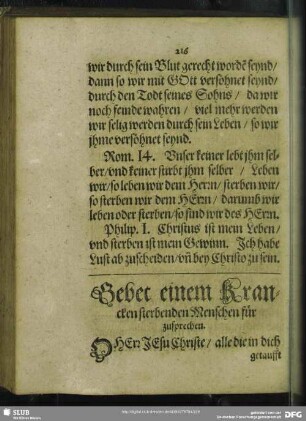 216
wir durch sein Blut gerecht wordẽ seynd/
dann so wir mit GOtt versöhnet seynd/
durch den Todt seines Sohns / da wir
noch feinde wahren / viel mehr werden
wir selig werden durch sein Leben / so wir
jhme versöhnet seynd.
Rom. 14. Vnser keiner lebt jhm sel-
ber/vnd keiner stirbt jhm selber / Leben
wir/so leben wir dem Herrn/sterben wir/
so sterben wir dem HErrn / darumb wir
leben oder sterben/so sind wir des HErrn.
Philip. I. Christus ist mein Leben/
vnd sterben ist mein Gewinn. Ich habe
Lust ab zuscheiden/vñ bey Christo zu sein.
Gebet einem Kran-
cken sterbenden Menschen für
zusprechen.
O HErr JEsu Christe/ alle die in dich
getaufft
SLUB
Wir führen Wissen.
DFG